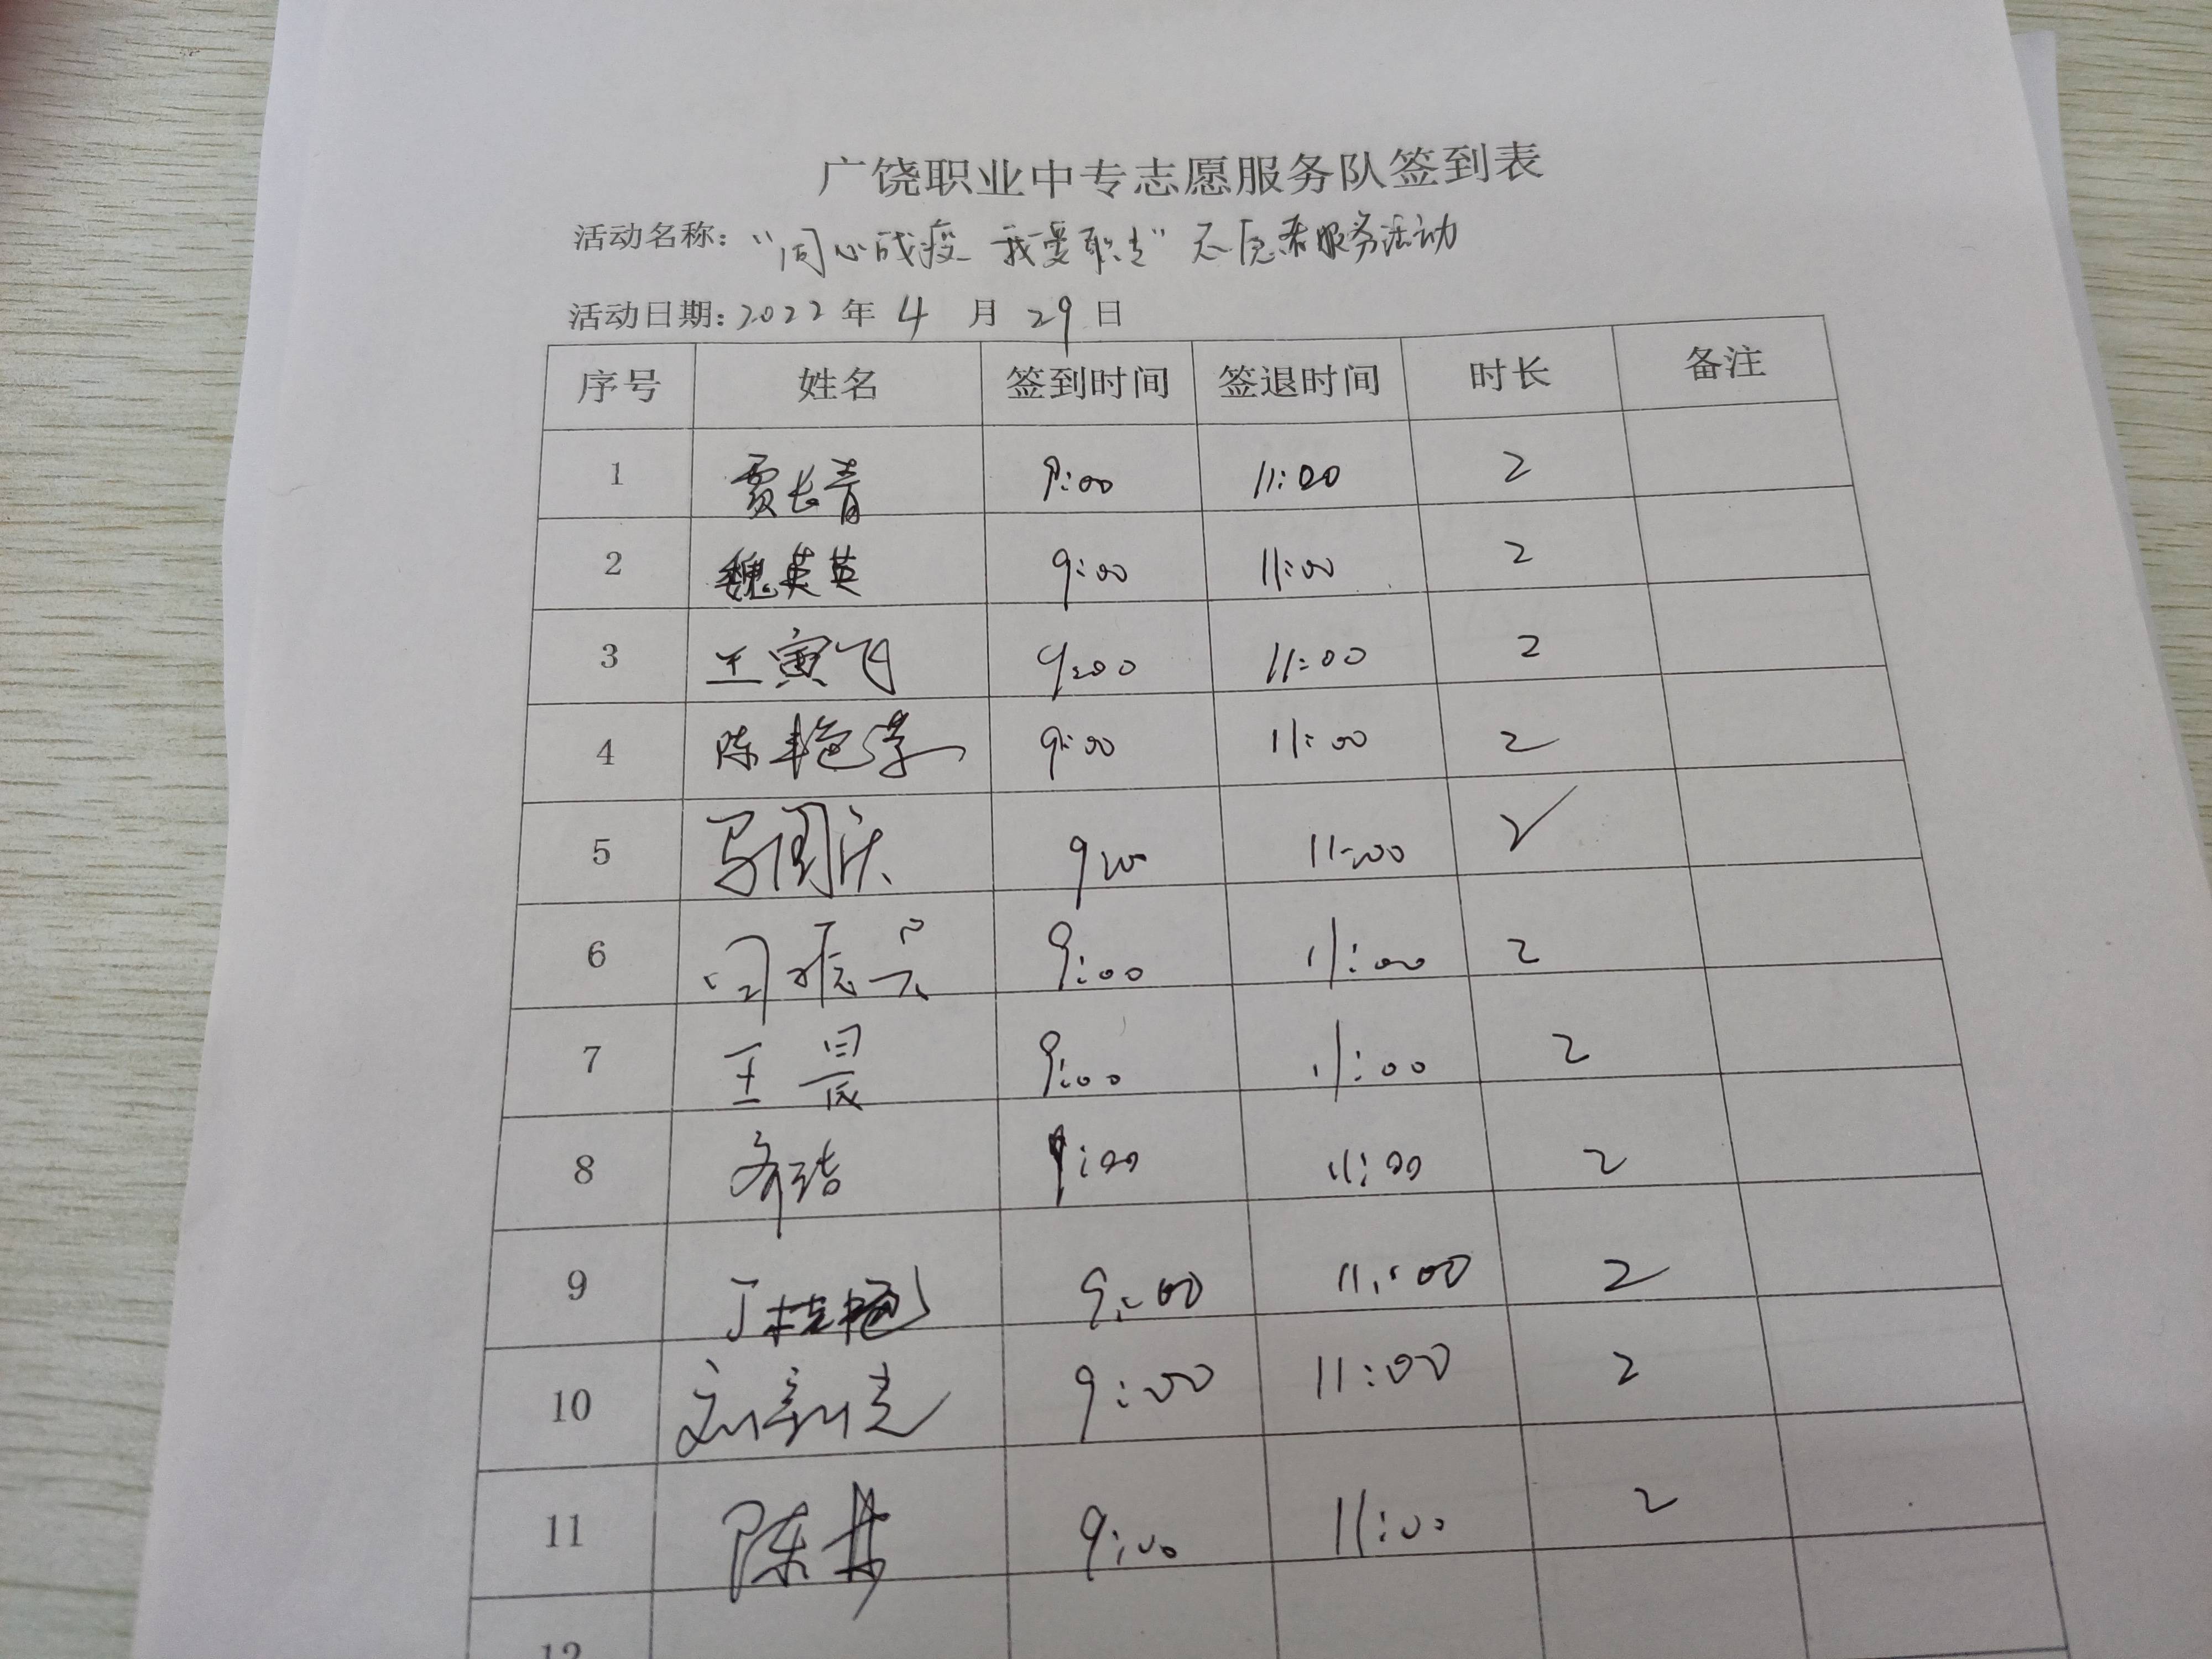 广饶职业中专志愿服务队签到表
活动名称：“同心战疫 我爱职专”志愿者服务活动
活动日期：2022 年 4 月 29 日
序号 姓名 签到时间 签退时间 时长 备注
1 贾长青 9:00 11:00 2
2 魏英英 9:00 11:00 2
3 王寅飞 9:00 11:00 2
4 陈艳 9:00 11:00 2
5 马国庆 9:00 11:00 2
6 闫振 9:00 11:00 2
7 王昊 9:00 11:00 2
8 9:00 11:00 2
9 丁桂艳 9:00 11:00 2
10 刘新亮 9:00 11:00 2
11 陈 9:00 11:00 2
12